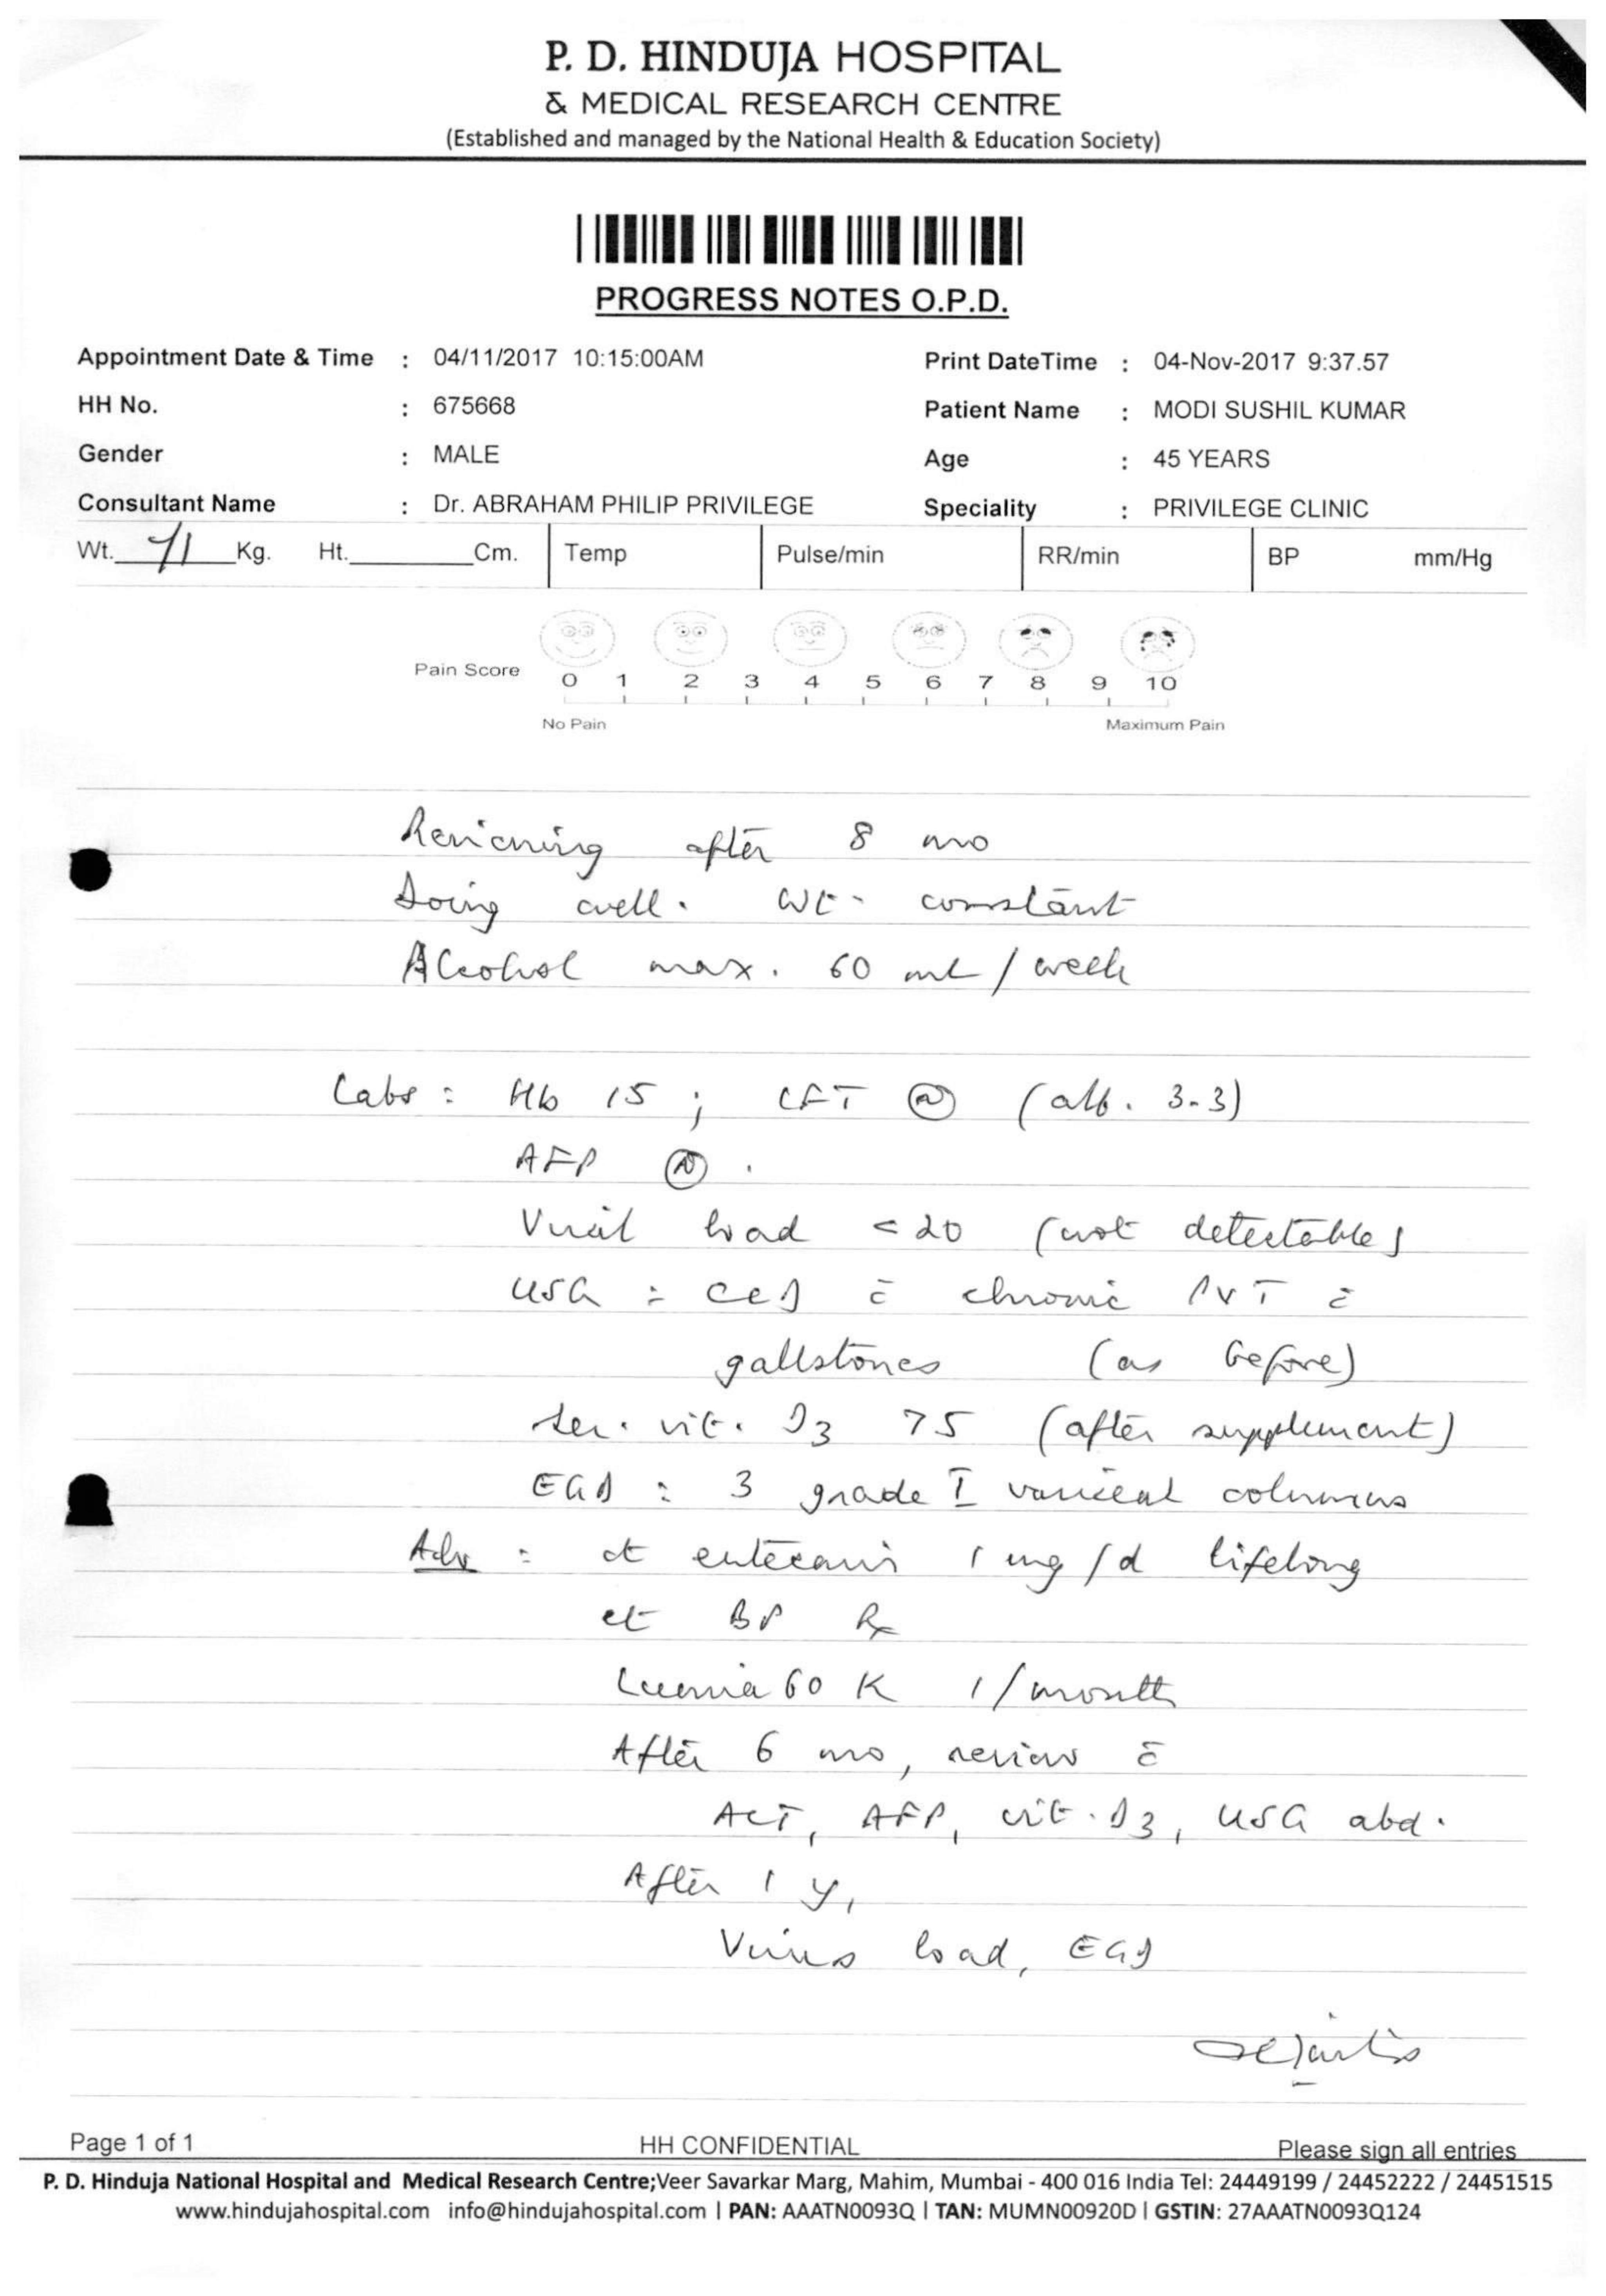 P. D. HINDUJA HOSPITAL
& MEDICAL RESEARCH CENTRE
(Established and managed by the National Health & Education Society)
PROGRESS NOTES O.P.D.
Appointment Date & Time : 04/11/2017 10:15:00AM Print DateTime : 04-Nov-2017 9:37.57
HH No. : 675668 Patient Name : MODI SUSHIL KUMAR
Gender : MALE Age : 45 YEARS
Consultant Name : Dr. ABRAHAM PHILIP PRIVILEGE Speciality : PRIVILEGE CLINIC
Wt. 71 Kg. Ht. Cm. Temp Pulse/min RR/min BP mm/Hg
Pain Score 0 1 2 3 4 5 6 7 8 9 10
No Pain Maximum Pain
after 8 mo
Doing well. Wt. constant
Alcohol max. 60 ml / week
Labs : Hb 15 ; LFT Ⓝ (alb. 3.3)
AFP Ⓝ .
Viral load < 20 (not detectable)
USG : CLD c̄ chronic PVT c̄
gallstones (as before)
Ser. vit. D3 75 (after supplement)
EGD : 3 grade I variceal columns
Adv : ct entecavir 1 mg /d lifelong
ct BP Rx
60 K 1/month
After 6 mo, review c̄
AFP, vit. D3, USG abd.
After 1 y,
Virus load, EGD
Page 1 of 1 HH CONFIDENTIAL Please sign all entries
P. D. Hinduja National Hospital and Medical Research Centre;Veer Savarkar Marg, Mahim, Mumbai - 400 016 India Tel: 24449199 / 24452222 / 24451515
www.hindujahospital.com info@hindujahospital.com | PAN: AAATN0093Q | TAN: MUMN00920D | GSTIN: 27AAATN0093Q124